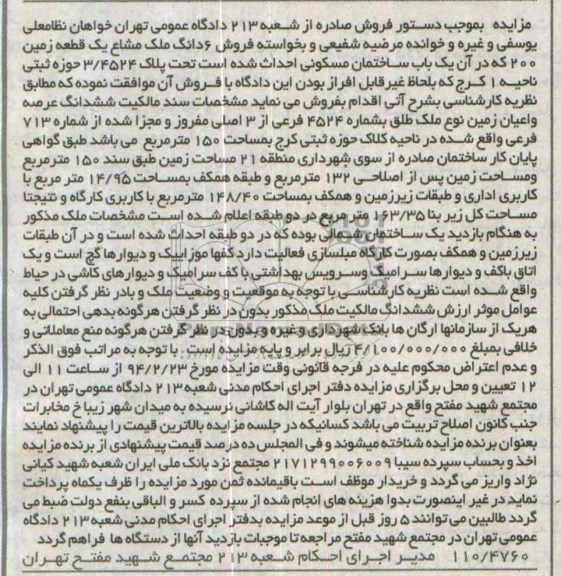 مزایده بموجب دستور فروش صادره از شعبه ۲۱۳ دادگاه عمومی تهران خواهان نظامعلی
یوسفی و غیره و خوانده مرضیه شفیعی و بخواسته فروش ۶دانگ ملک مشاع یک قطعه زمین
۲۰۰ که در آن یک باب ساختمان مسکونی احداث شده است تحت پلاک ۳/۴۵۲۴ حوزه ثبتی
ناحیه ۱ کرج که بلحاظ غیرقابل افراز بودن این دادگاه با فروش آن موافقت نموده که مطابق
نظریه کارشناسی بشرح آتی اقدام بفروش می نماید مشخصات سند مالکیت ششدانگ عرصه
واعیان زمین نوع ملک طلق بشماره ۴۵۲۴ فرعی از ۳ اصلی مفروز و مجزا شده از شماره ۷۱۳
فرعی واقع شده در ناحیه کلاک حوزه ثبتی کرج بمساحت ۱۵۰ مترمربع می باشد طبق گواهی
پایان کار ساختمان صادره از سوی شهرداری منطقه ۲۱ مساحت زمین طبق سند ۱۵۰ مترمربع
ومساحت زمین پس از اصلاحی ۱۳۲ مترمربع و طبقه همکف بمساحت ۱۴/۹۵ متر مربع با
کاربری اداری و طبقات زیرزمین و همکف بمساحت ۱۴۸/۴۰ مترمربع با کاربری کارگاه و نتیجتا
مساحت کل زیر بنا ۱۶۳/۳۵ متر مربع در دو طبقه اعلام شده است مشخصات ملک مذکور
به هنگام بازدید یک ساختمان شمالی بوده که در دو طبقه احداث شده است و در آن طبقات
زیرزمین و همکف بصورت کارگاه مبلسازی فعالیت دارد کفها موزاییک و دیوارها گچ است و یک
اتاق باکف و دیوارها سرامیک وسرویس بهداشتی با کف سرامیک و دیوارهای کاشی در حیاط
واقع شده است نظریه کارشناسی با توجه به موقعیت و وضعیت ملک و بادر نظر گرفتن کلیه
عوامل موثر ارزش ششدانگ مالکیت ملک مذکور بدون در نظر گرفتن هرگونه بدهی احتمالی به
هریک از سازمانها ارگان ها بانک شهرداری و غیره و بدون در نظر گرفتن هرگونه منع معاملاتی و
خلافی بمبلغ ۴/۱۰۰/۰۰۰/۰۰۰ ریال برابر و پایه مزایده است. با توجه به مراتب فوق الذکر
و عدم اعتراض محکوم علیه در فرجه قانونی وقت مزایده مورخ ۹۴/۲/۲۳ از ساعت ۱۱ الی
۱۲ تعیین و محل برگزاری مزایده دفتر اجرای احکام مدنی شعبه ۲۱۳ دادگاه عمومی تهران در
مجتمع شهید مفتح واقع در تهران بلوار آیت اله کاشانی نرسیده به میدان شهر زیبا خ مخابرات
جنب کانون اصلاح تربیت می باشد کسانیکه در جلسه مزایده بالاترین قیمت را پیشنهاد نمایند
بعنوان برنده مزایده شناخته میشوند و فی المجلس ده در صد قیمت پیشنهادی از برنده مزایده
اخذ و بحساب سپرده سیبا ۲۱۷۱۲۹۹۰۰۶۰۰۹ مجتمع نزد بانک ملی ایران شعبه شهید کیانی
نژاد واریز می گردد و خریدار موظف است باقیمانده ثمن مورد مزایده را ظرف یکماه پرداخت
نماید در غیر اینصورت بدوا هزینه های انجام شده از سپرده کسر و الباقی بنفع دولت ضبط می
گردد طالبین می توانند ۵ روز قبل از موعد مزایده بدفتر اجرای احکام مدنی شعبه ۲۱۳ دادگاه
عمومی تهران در مجتمع شهید مفتح مراجعه تا موجبات بازدید آنها از دستگاه ها فراهم گردد
۱۱۰/۴۷۶۰ مدیر اجرای احکام شعبه ۲۱۳ مجتمع شهید مفتح تهران